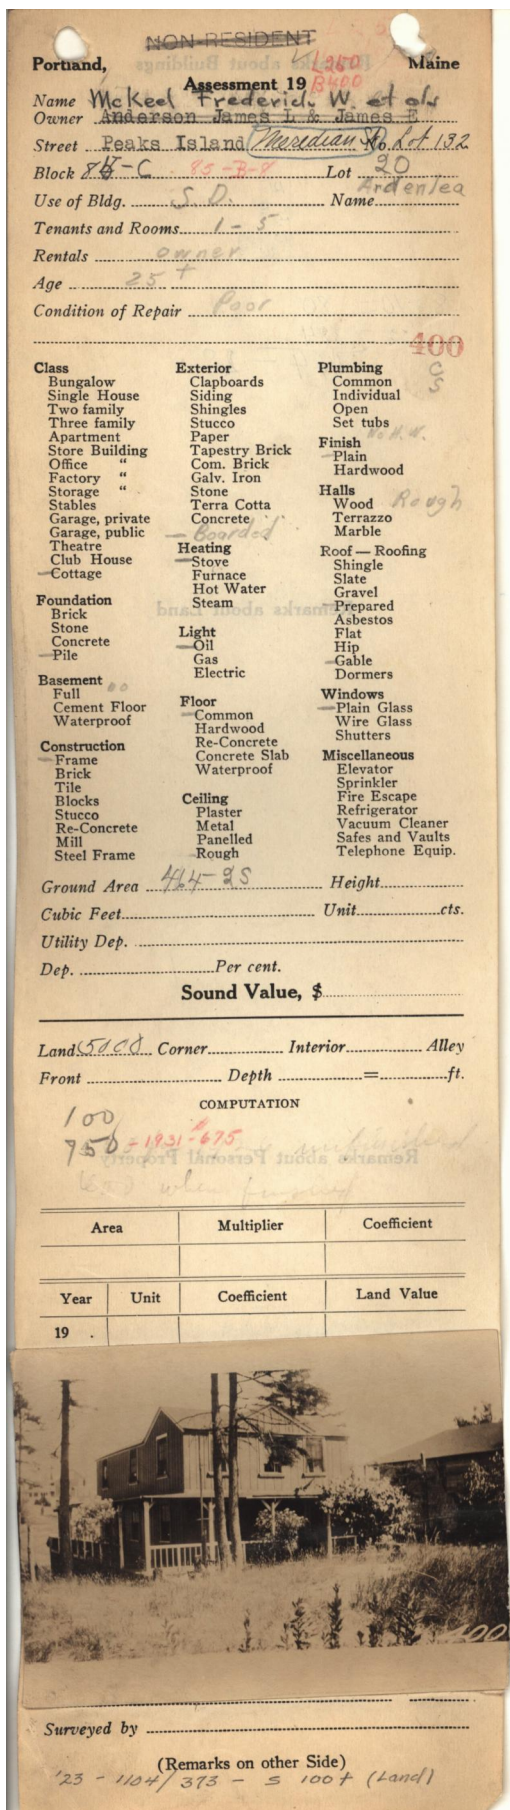 NON-RESIDENT
L 250
B 400
Portland, Maine
Assessment 19
Name McKeel Frederick W. et als
Owner Anderson James L & James E
Street Peaks Island Meredian St No. Lot 132
Block 84-C 85-B-4 Lot 20
Use of Bldg. S. D. Name Ardenlea
Tenants and Rooms 1 - 5
Rentals owner
Age 25 +
Condition of Repair Poor
400
Class
Bungalow
Single House
Two family
Three family
Apartment
Store Building
Office "
Factory "
Storage "
Stables
Garage, private
Garage, public
Theatre
Club House
Cottage
Foundation
Brick
Stone
Concrete
Pile
Basement no
Full
Cement Floor
Waterproof
Construction
Frame
Brick
Tile
Blocks
Stucco
Re-Concrete
Mill
Steel Frame
Exterior
Clapboards
Siding
Shingles
Stucco
Paper
Tapestry Brick
Com. Brick
Galv. Iron
Stone
Terra Cotta
Concrete
- Boarded
Heating
Stove
Furnace
Hot Water
Steam
Light
Oil
Gas
Electric
Floor
Common
Hardwood
Re-Concrete
Concrete Slab
Waterproof
Ceiling
Plaster
Metal
Panelled
Rough
Plumbing C
Common S
Individual
Open
Set tubs
No H.W.
Finish
Plain
Hardwood
Halls
Wood Rough
Terrazzo
Marble
Roof — Roofing
Shingle
Slate
Gravel
Prepared
Asbestos
Flat
Hip
Gable
Dormers
Windows
Plain Glass
Wire Glass
Shutters
Miscellaneous
Elevator
Sprinkler
Fire Escape
Refrigerator
Vacuum Cleaner
Safes and Vaults
Telephone Equip.
Ground Area 464-2S Height
Cubic Feet Unit cts.
Utility Dep.
Dep. Per cent.
Sound Value, $
Land 5000 Corner Interior Alley
Front Depth = ft.
COMPUTATION
100
750 - 1931 - 675
Area Multiplier Coefficient
Year Unit Coefficient Land Value
19
400
Surveyed by
(Remarks on other Side)
'23 - 1104/373 - S 100+ (Land)